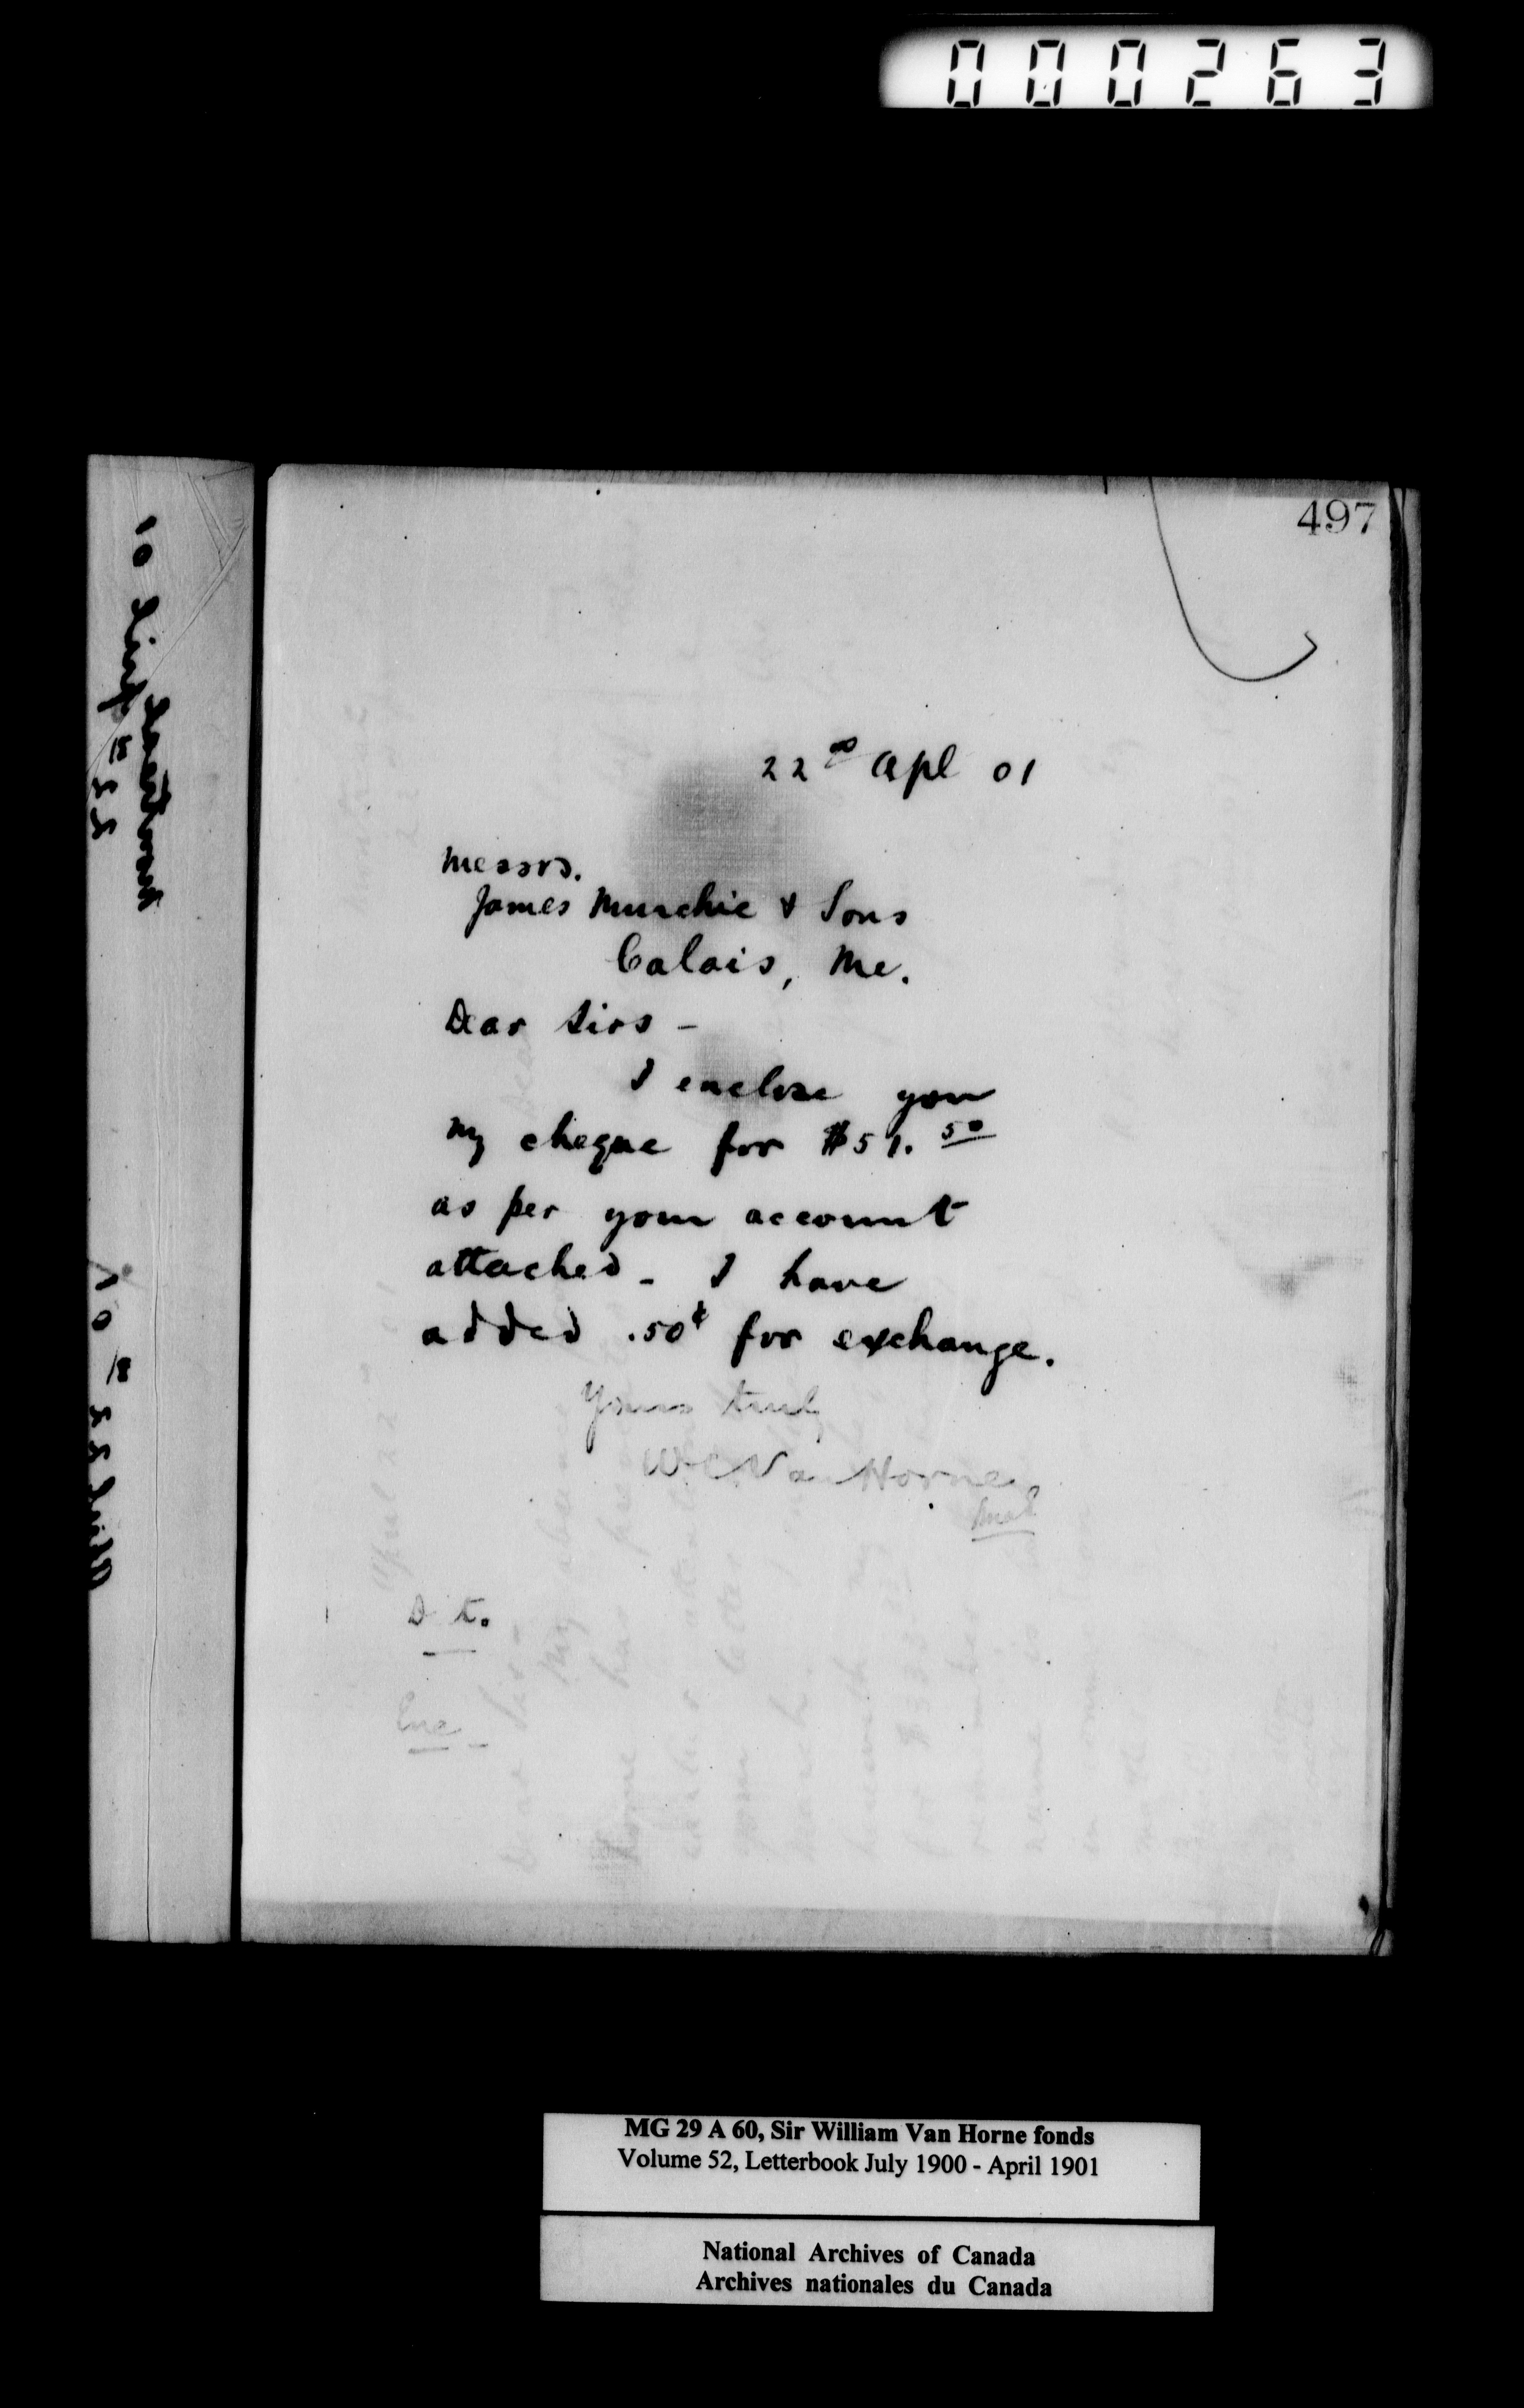 000263
497
22nd Apl 01
Messrs.
James Murchie & Sons
Calais, Me.
Dear Sirs -
I enclose you
my cheque for $51.50
as per your account
attached - I have
added .50¢ for exchange.
Yours truly
W C Van Horne
D t.
Enc -
MG 29 A 60, Sir William Van Horne fonds
Volume 52, Letterbook July 1900 - April 1901
National Archives of Canada
Archives nationales du Canada